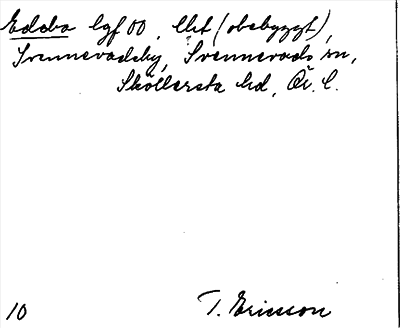 Edeba lgf 00, lht (obebyggt),
Svennevadsby, Svennevads sn,
Sköllersta hd, Ör. l.
10 T. Ericsson